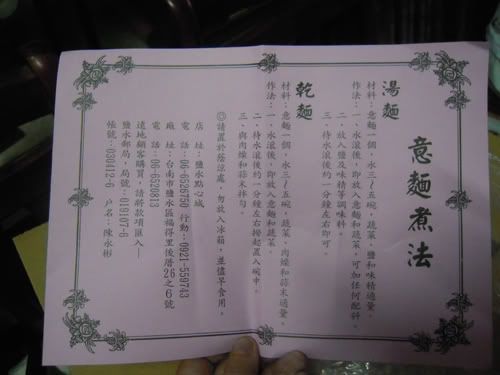 意麵煮法
湯麵
材料：意麵一個，水三～五碗，蔬菜、鹽和味精適量。
作法：一、水滾後，即放入意麵和蔬菜，可加任何配料。
二、放入鹽及味精等調味料。
三、待水滾後約一分鐘左右即可。
乾麵
材料：意麵一個，水三～五碗，蔬菜、肉燥和蒜末適量。
作法：一、水滾後，即放入意麵和蔬菜。
二、待水滾後約一分鐘左右撈起置入碗中。
三、與肉燥和蒜末拌勻。
◎請置於蔭涼處，勿放入冰箱，並儘早食用。
店 址：鹽水點心城
電 話：06-6526750 行動：0921-559743
廠 址：台南市鹽水區福得里後厝26之6號
電 話：06-6520813
遠地顧客購買，請將款項匯入—
鹽水郵局，局號：019107-6
帳號：030412-6 戶名：陳永彬